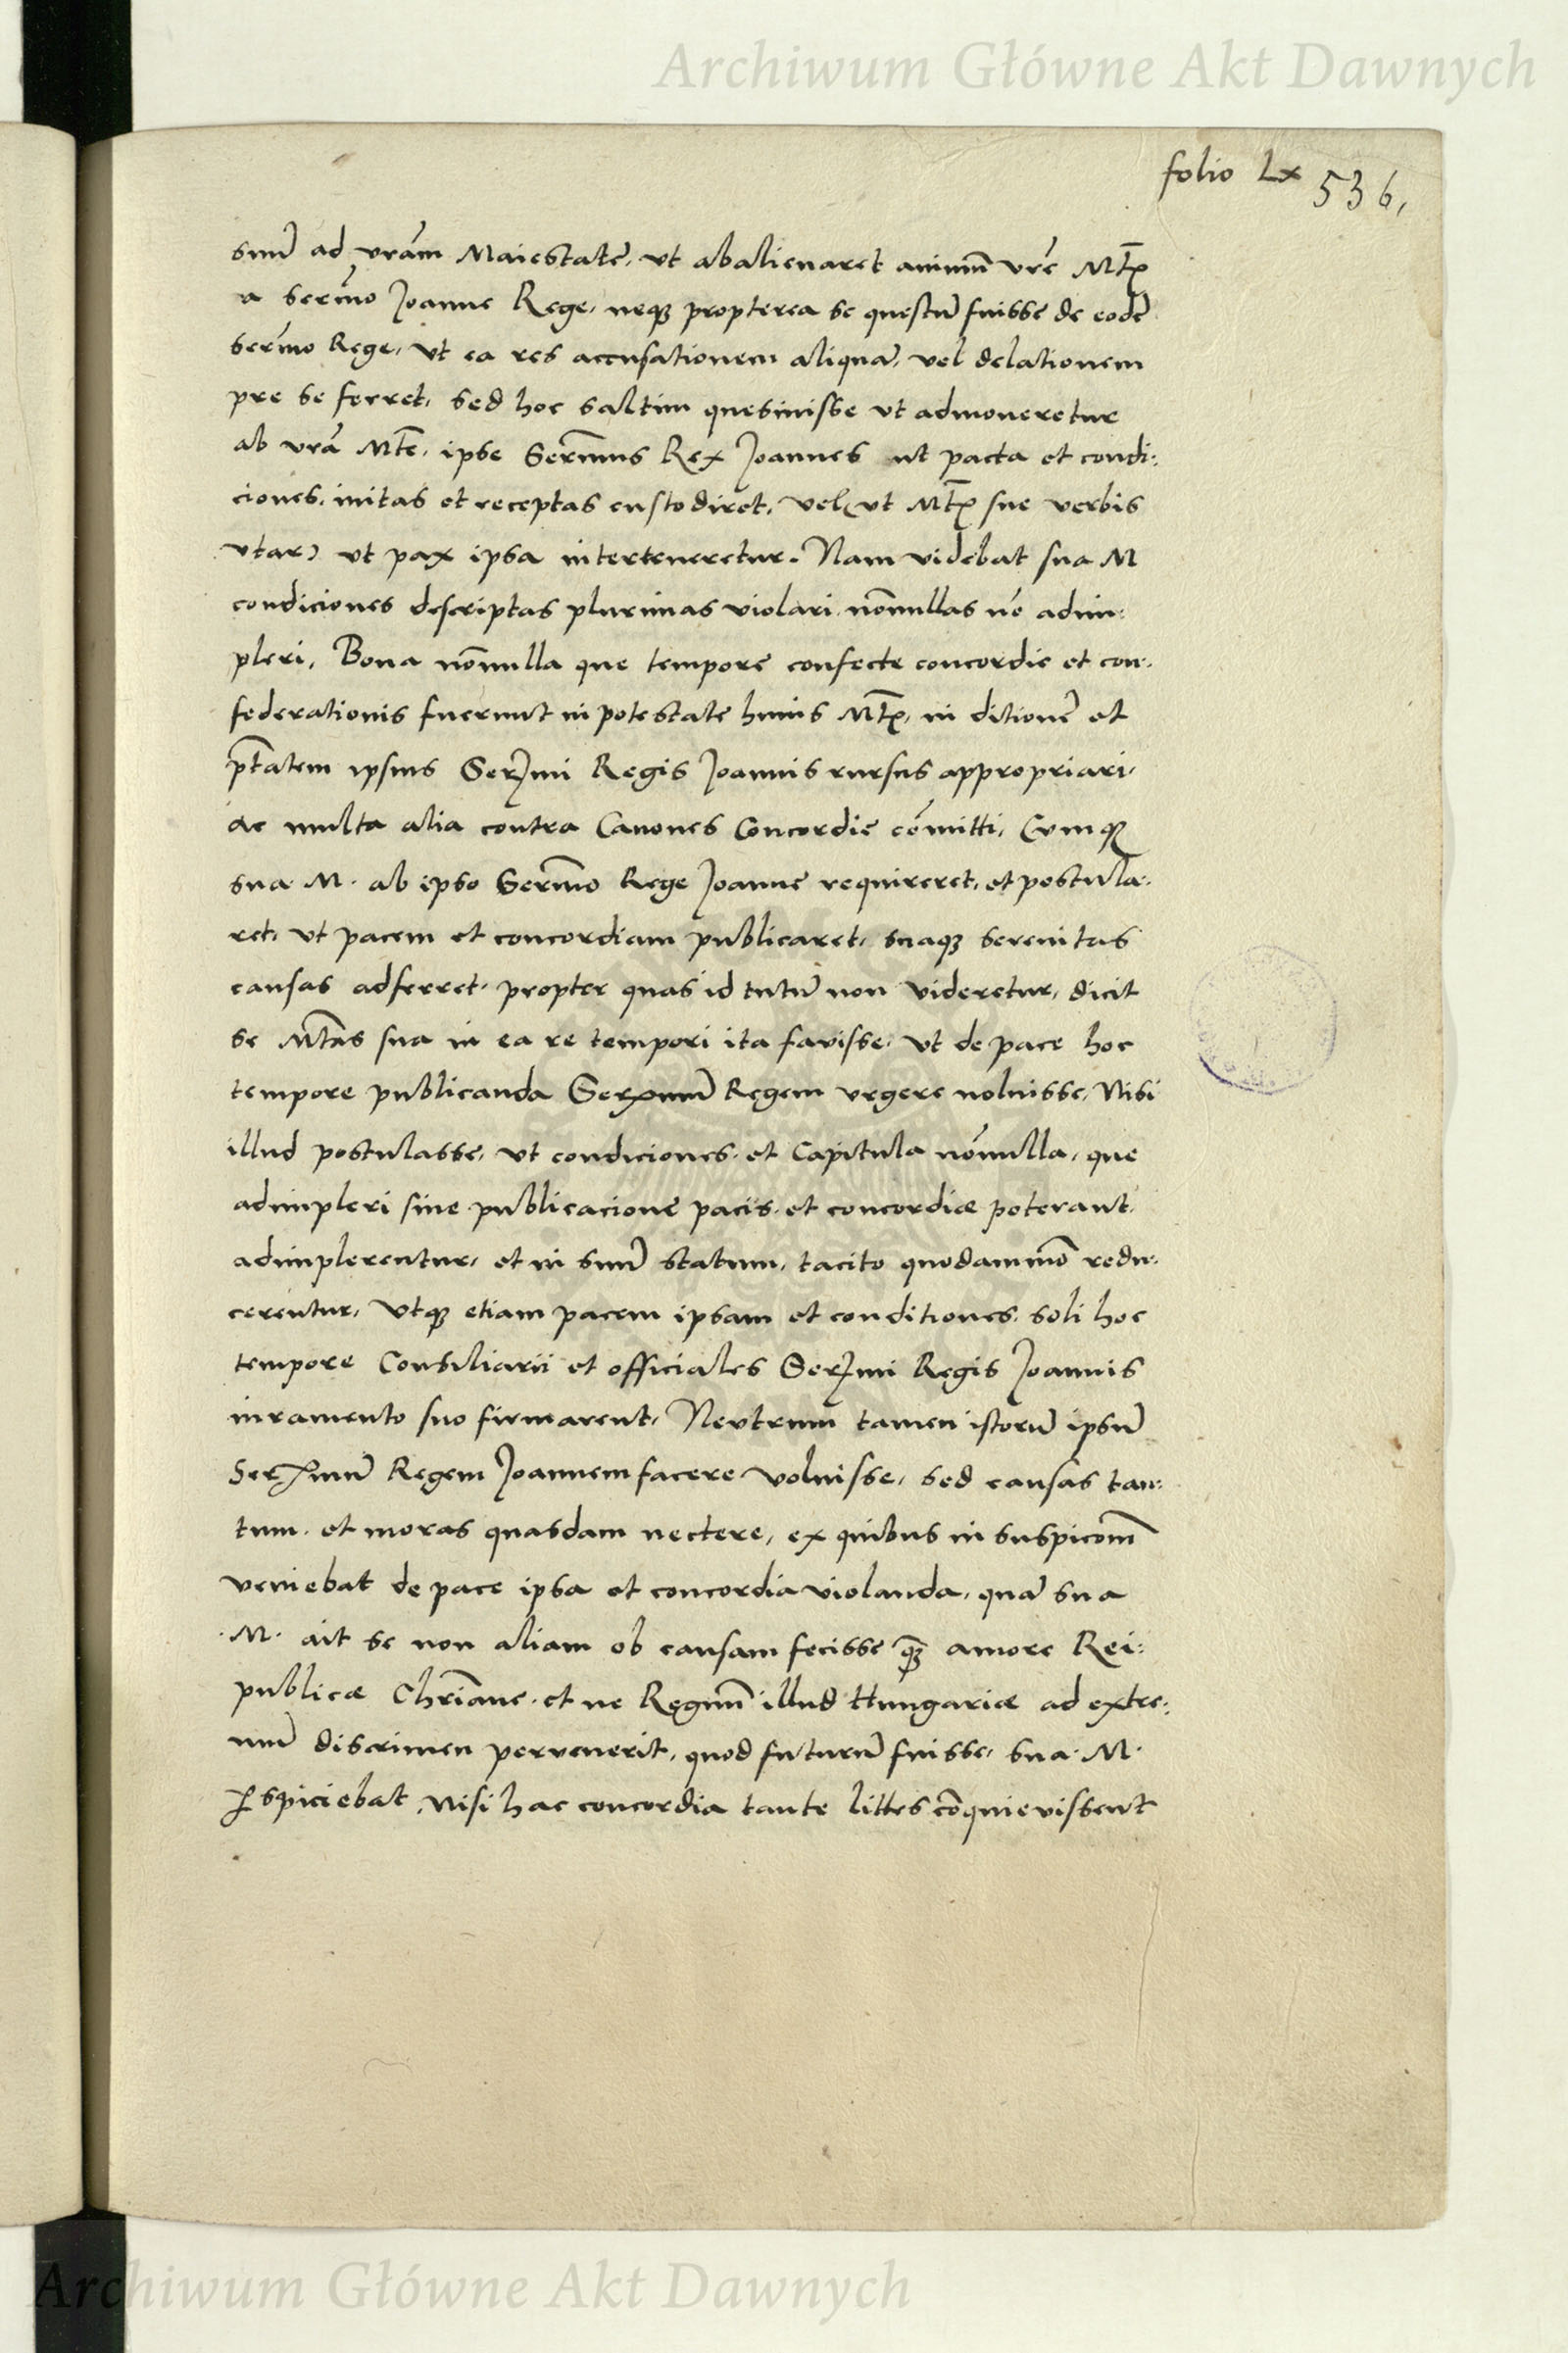 Archiwum Główne Akt Dawnych
folio Lx 536,
suũ ad vrãm Maiestatẽ, vt abalienaret animũ vrẽ Mtꝭ
a sermõ Joanne Rege, neqꝫ propterea se questũ fuisse de eodẽ
sermõ Rege, vt ea res accusationem aliquã, vel delationem
pre se ferret, sed hoc saltim quesiuisse vt admoneretur
ab vrã Mte, ipse Sermus Rex Joannes ut pacta et condi:
ciones, initas et receptas custodiret, vel (vt Mtꝭ sue verbis
vtar) vt pax ipsa interteneretur. Nam videbat sua M
condiciones descriptas plurimas violari, nõnullas nõ adim:
pleri, Bona nõnulla que tempore confecte concordie et con:
federationis fuerunt in potestate huius Mtꝭ, in ditionẽ et
ptãtem ipsius Serꝫmi Regis Joannis rursus appropriari,
ac multa alia contra Canones Concordie cõmitti, Cumqꝫ
sua M. ab ipso Sermõ Rege Joanne requireret, et postula:
ret, vt pacem et concordiam publicaret, suaqꝫ serenitas
causas adferret, propter quas id tutũ non videretur, dicit
se Mtãs sua in ea re tempori ita favisse, vt de pace hoc
tempore publicanda Serꝫmũ Regem vrgere noluisse, Nisi
illud postulasse, vt condiciones, et Capitula nõnulla, que
adimpleri sine publicacione paciis, et concordiæ poterant,
adimplerentur, et in suũ statum, tacito quodammõ redu:
cerentur, Vtqꝫ etiam pacem ipsam et conditiones, soli hoc
tempore Consiliarii et officiales Serꝫmi Regis Joannis
iuramento suo firmarent, Neutrum tamen istorũ ipsũ
Serꝫmũ Regem Joannem facere voluisse, sed causas tan:
tum, et moras quasdam nectere, ex quibus in suspicõm
veniebat de pace ipsa et concordia violanda, quã sua
.M. ait se non aliam ob causam fecisse qꝫ amore Rei:
publicæ Chriãne, et ne Regnũ illud Hungariæ ad extre:
mũ discrimen pervenerit, quod futurũ fuisse, sua M.
ꝑspiciebat, Nisi hac concordia tante littes cõquievissent
Archiwum Główne Akt Dawnych